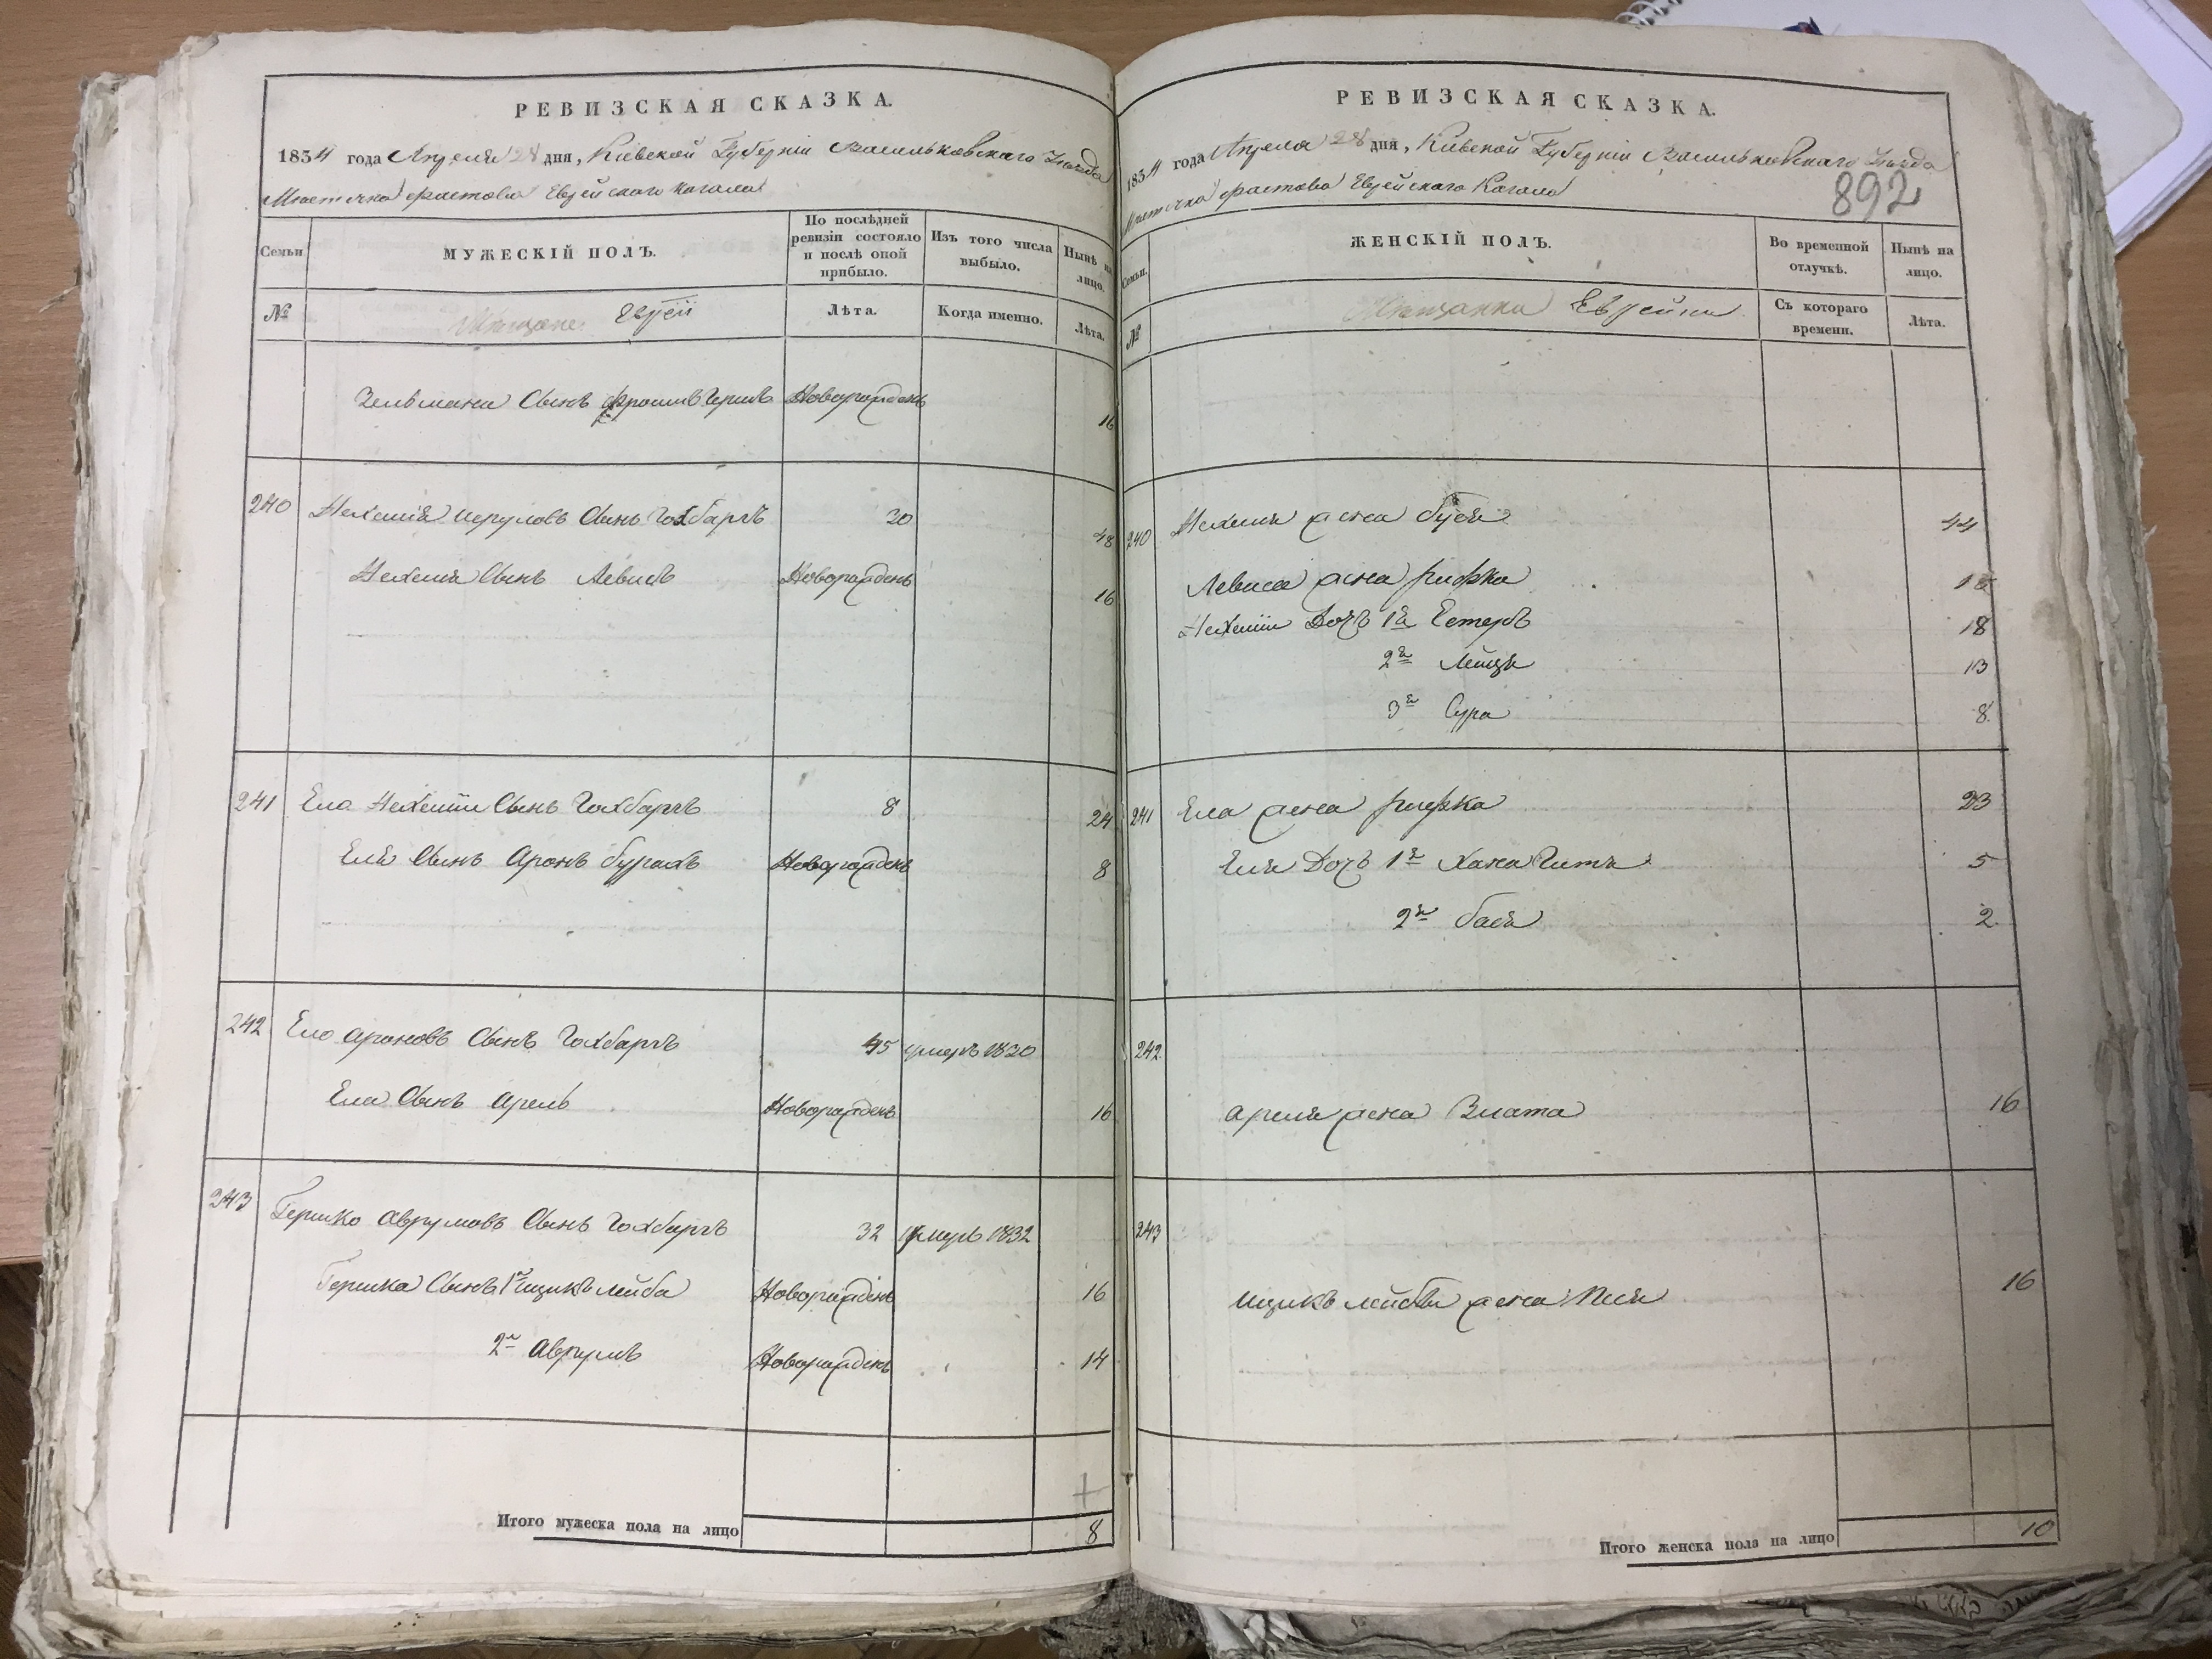 РЕВИЗСКАЯ СКАЗКА.
1834 года Апреля 28 дня, Кіевской Губерніи Васильковскаго Уезда
Местечка Фастова Еврейскаго Кагала
Семьи
МУЖЕСКІЙ ПОЛЪ.
По послѣдней ревизіи состояло и послѣ оной прибыло.
Изъ того числа выбыло.
Нынѣ на лицо.
№
Мещане Евреи
Лѣта.
Когда именно.
Лѣта.
Зельмана Сынъ Фроимъ Гершъ Новорожденъ 16
240 Нехемія Сынъ Гохбаргъ 20 48
Нехемія Сынъ Левисъ Новорожденъ 16
241 Ела Нехеміи Сынъ Гохбаргъ 8 24
Еля Сынъ Аронъ Бурахъ Новорожденъ 8
242 Ело Ароновъ Сынъ Гохбаргъ 45 умеръ 1830
Ела Сынъ Арель Новорожденъ 16
243 Гершко Аврумовъ Сынъ Гохбаргъ 32 умеръ 1832
Гершка Сынъ 1й Ицикъ Лейба Новорожденъ 16
2й Аврумъ Новорожденъ 14
Итого мужеска пола на лицо 8
РЕВИЗСКАЯ СКАЗКА.
1834 года Апреля 28 дня, Кіевской Губерніи Васильковскаго Уезда
Местечка Фастова Еврейскаго Кагала
892
Семьи.
ЖЕНСКІЙ ПОЛЪ.
Во временной отлучкѣ.
Нынѣ на лицо.
№
Мещанки Еврейки
Съ котораго времени.
Лѣта.
240 Нехемія жена Буся 44
Левиса жена Рифка
Нехеміи Дочь 1я Естеръ 18
2я Лейця 13
3я Сура 8
241 Ела жена Рифка 23
Еля Дочь 1я Хана Гитя 5
2я Бася 2
242
Ареля жена Злата 16
243
Ицикъ Лейби жена Песя 16
Итого женска пола на лицо 10